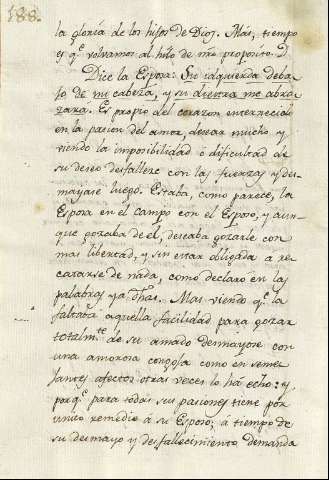 188.
la gloria de los hijos de Dios. Mas, tiempo
es q.e volvamos al hilo de nro proposito.
Dice la Esposa: Su izquierda deba-
jo de mi cabeza, y su diestra me abra-
zara. Es propio del corazon enternecido
en la pasion del amor, desear mucho, y
viendo la imposibilidad ó dificultad de
su deseo desfallece con las fuerzas y des-
mayase luego. Estaba, como parece, la
Esposa en el campo con el Esposo, y aun-
que gozaba de él, deseaba gozarle con
mas libertad, y sin estar obligada a re-
catarse de nada, como declaró en las
palabras ya dhas. Mas viendo q.e la
faltaba aquella facilidad para gozar
totalm.te de su amado desmayose con
una amorosa congoja como en seme-
jantes afectos otras veces lo ha echo: y,
porq.e para todas sus pasiones tiene por
unico remedio á su Esposo; á tiempo de
su desmayo y desfallecimiento demanda